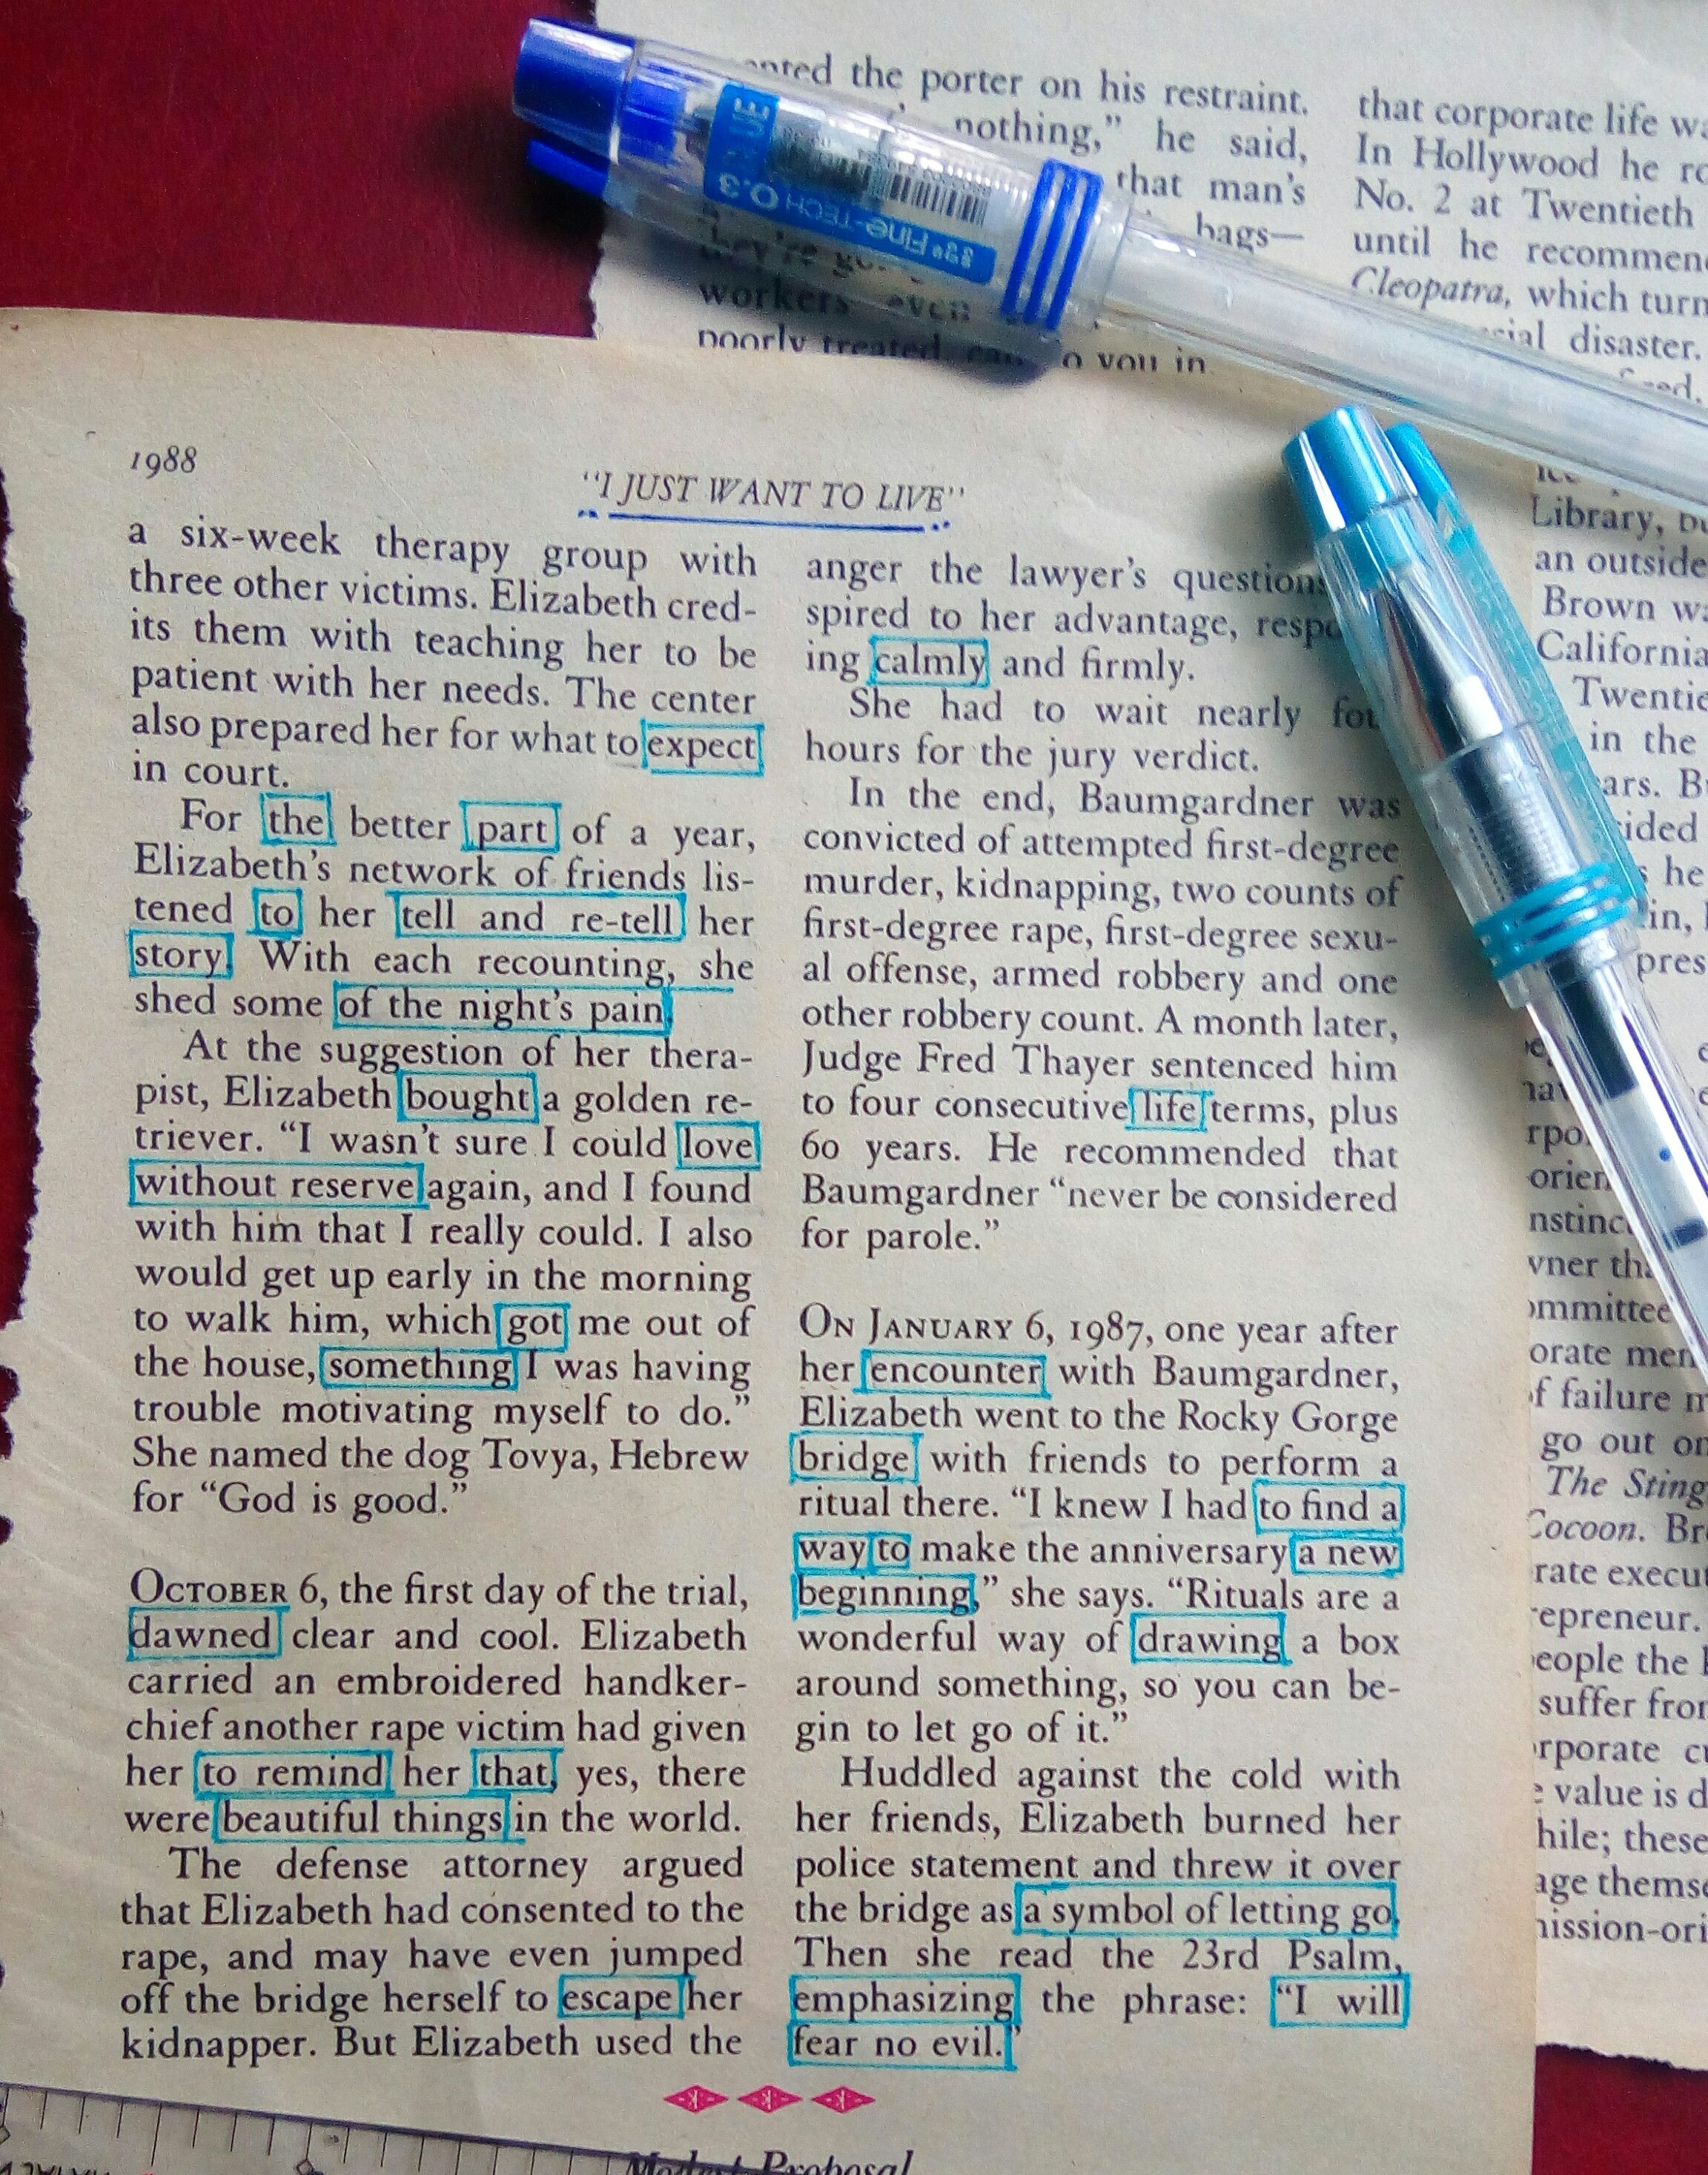 the porter on his restraint.
nothing," he said,
that man's
bags—
workers even
poorly treated, you in
that corporate life
In Hollywood he
No. 2 at Twentieth
until he
Cleopatra, which
disaster.
Fine-TECH 0.3
1988
"I JUST WANT TO LIVE"
a six-week therapy group with
three other victims. Elizabeth cred-
its them with teaching her to be
patient with her needs. The center
also prepared her for what to expect
in court.
For the better part of a year,
Elizabeth's network of friends lis-
tened to her tell and re-tell her
story. With each recounting, she
shed some of the night's pain.
At the suggestion of her thera-
pist, Elizabeth bought a golden re-
triever. "I wasn't sure I could love
without reserve again, and I found
with him that I really could. I also
would get up early in the morning
to walk him, which got me out of
the house, something I was having
trouble motivating myself to do."
She named the dog Tovya, Hebrew
for "God is good."
OCTOBER 6, the first day of the trial,
dawned clear and cool. Elizabeth
carried an embroidered handker-
chief another rape victim had given
her to remind her that, yes, there
were beautiful things in the world.
The defense attorney argued
that Elizabeth had consented to the
rape, and may have even jumped
off the bridge herself to escape her
kidnapper. But Elizabeth used the
anger the lawyer's
spired to her advantage,
ing calmly and firmly.
She had to wait nearly
hours for the jury verdict.
In the end, Baumgardner was
convicted of attempted first-degree
murder, kidnapping, two counts of
first-degree rape, first-degree sexu-
al offense, armed robbery and one
other robbery count. A month later,
Judge Fred Thayer sentenced him
to four consecutive life terms, plus
60 years. He recommended that
Baumgardner "never be considered
for parole."
ON JANUARY 6, 1987, one year after
her encounter with Baumgardner,
Elizabeth went to the Rocky Gorge
bridge with friends to perform a
ritual there. "I knew I had to find a
way to make the anniversary a new
beginning," she says. "Rituals are a
wonderful way of drawing a box
around something, so you can be-
gin to let go of it."
Huddled against the cold with
her friends, Elizabeth burned her
police statement and threw it over
the bridge as a symbol of letting go.
Then she read the 23rd Psalm,
emphasizing the phrase: "I will
fear no evil."
Library,
an outside
Brown
California
in the
he
in,
ommittee
of failure
go out
The Sting
Cocoon.
people the
suffer
value is
these
Modest Proposal